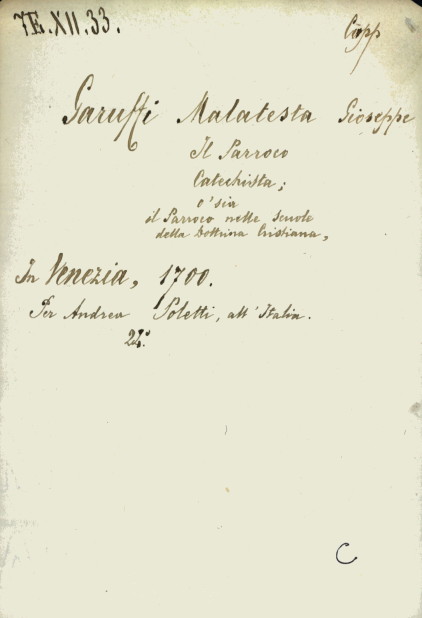 7E.XII.33. Capp
Garuffi Malatesta Gioseppe
Il Parroco
Catechista;
o'sia
il Parroco nelle scuole
della Dottrina Cristiana,
In Venezia, 1700.
Per Andrea Poletti, all'Italia.
C